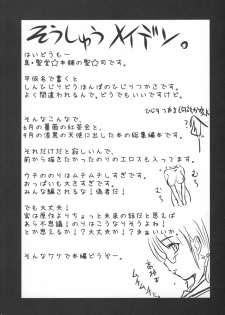 そうしゅうメイデン。
はいどうもー
真・聖堂☆本舗の聖☆司です。
平仮名で書くと
しんひじりどうほんぽのひじりつかさです。
よく間違われるんで、どうでもいいですけど。
そんなこんなで、
6月の薔薇の紅茶会と、
9月の漆黒の天使に出した本の総集編本です。
それだけだと寂しいんで、
前から描きたかったのりのエロスも入ってます。
ウチののりはムチムチしすぎです。
おっぱいも大きすぎです。
みんな騙されるな!偽者だ!
でも大丈夫!
実は原作よりちょっと未来の話だと思えば
あら不思議!のりはこうなりそうよね!
とか思えるか!?大丈夫か!?みんな!
そんなワケで本編どうぞー。